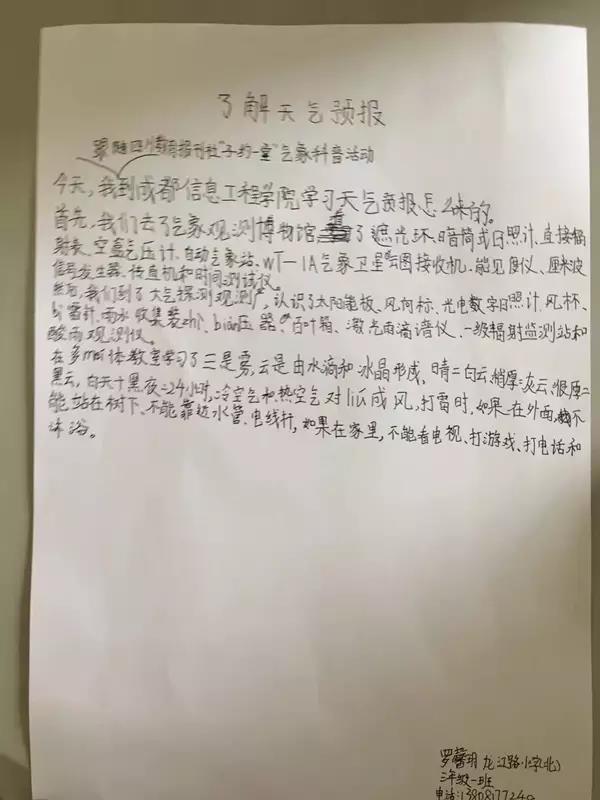 了解天气预报
跟随四川教育报刊社"子约一堂"气象科普活动
今天,我到成都信息工程学院学习天气预报怎么来的。
首先,我们去了气象观测博物馆看了遮光环、暗筒式日照计、直接辐
射表、空盒气压计、自动气象站、WT-1A气象卫星云图接收机、能见度仪、厘米波
信号发生器、传真机和时间测试仪。
然后,我们到了大气探测观测广,认识了太阳能板、风向标、光电数字日照计、风杯、
bì雷针、雨水收集装zhì、biàn压器、百叶箱、激光雨滴谱仪、一级辐射监测站和
酸雨观测仪。
在多méi体教室学习了三是雾,云是由水滴和冰晶形成,晴=白云,稍厚=灰云,很厚=
黑云,白天+黑夜=24小时,冷空气和热空气对liú成风,打雷时,如果在外面,不
能站在树下、不能靠近水管、电线杆,如果在家里,不能看电视、打游戏、打电话和
沐浴。
罗馨玥 龙江路小学(北)
三年级一班
电话:1380817724